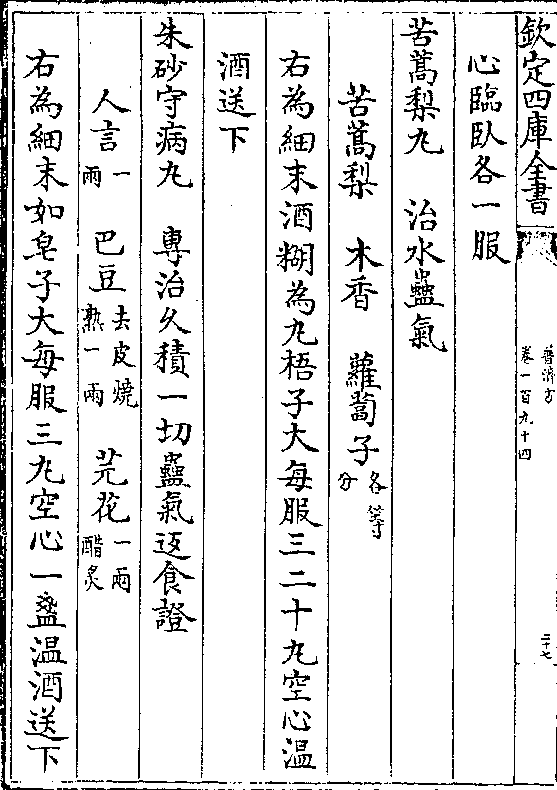 欽定四庫全書
普濟方
卷一百九十四
二十七
心臨臥各一服
苦蒿梨丸　治水蠱氣
苦蒿梨　木香　蘿蔔子各等分
右為細末酒糊為丸梧子大每服三二十丸空心温
酒送下
朱砂守病丸　專治久積一切蠱氣返食證
人言一兩　巴豆去皮燒熟一兩　芫花一兩醋炙
右為細末如皂子大每服三丸空心一盞温酒送下